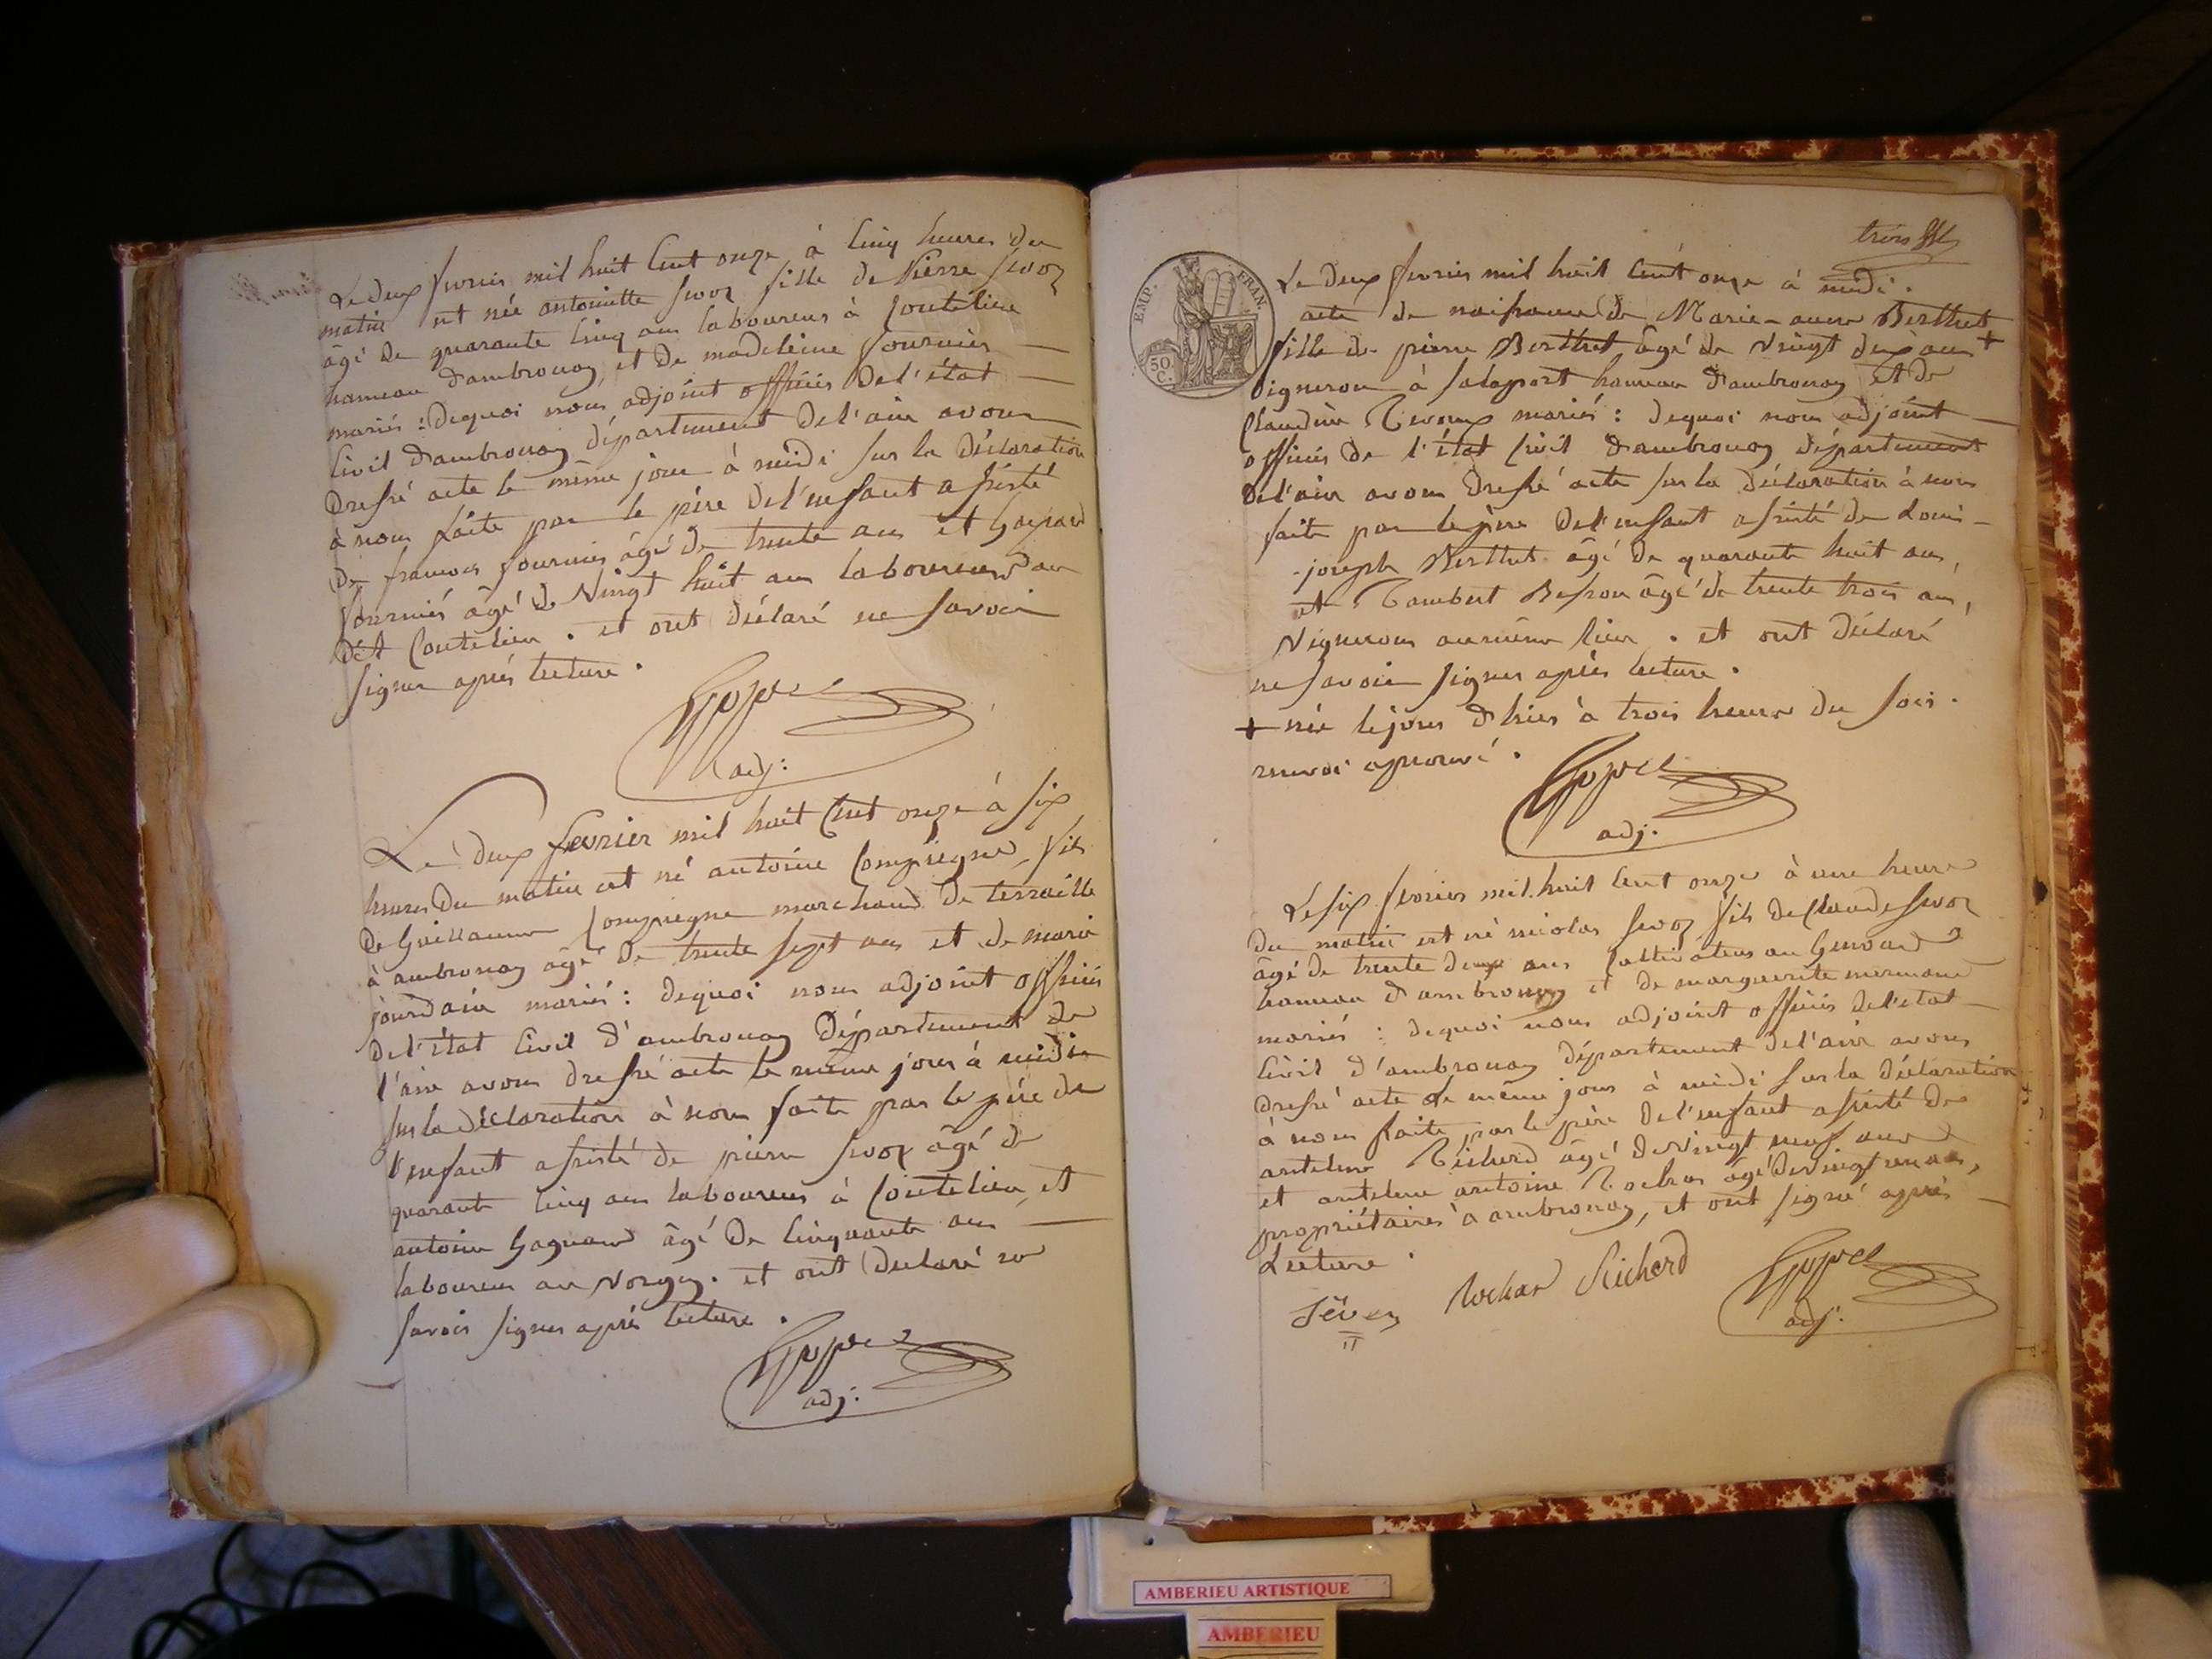 Le deux fevrier mil huit Cent onze à Cinq heures du
matin est née antoinette Sevoz fille de Pierre Sevoz
âgé de quarante Cinq ans laboureur à Coutelieu
hameau d'ambronay, et de madeleine fournier
mariés : dequoi nous adjoint officier de l'état
Civil d'ambronay département de l'ain avons
dressé acte le même jour à midi sur la déclaration
à nous faite par le père de l'enfant assisté
de françois fournier âgé de trente ans et
fournier âgé de Vingt huit ans laboureurs au
dit Coutelieu . et ont déclaré ne Savoir
signer après lecture .
adj:
Le deux fevrier mil huit Cent onze à six
heures du matin est né antoine Compiegne fils
de Guillaume Compiegne marchand de terraille
à ambronay âgé de trente sept ans et de marie
jourdain mariés : dequoi nous adjoint officier
de l'état Civil d'ambronay Département de
l'ain avons dressé acte le même jour à midi
sur la déclaration à nous faite par le père de
l'enfant assisté de pierre Sevoz âgé de
quarante Cinq ans laboureur à Coutelieu, et
antoine Gagnard âgé de Cinquante ans
laboureur au . et ont déclaré ne
savoir signer après lecture .
adj:
trois
EMP. FRAN.
50 C.
Le deux fevrier mil huit Cent onze à midi .
acte de naissance de Marie-anne Berthet
fille de pierre Berthet âgé de Vingt deux ans +
Vigneron à Salaport hameau d'ambronay et de
Claudine mariés : dequoi nous adjoint
officier de l'état Civil d'ambronay département
de l'ain avons dressé acte sur la déclaration à nous
faite par le père de l'enfant assisté de Louis-
joseph Berthet âgé de quarante huit ans,
et Rambert Besson âgé de trente trois ans,
Vignerons au même lieu . et ont déclaré
ne savoir signer après lecture .
+ née le jour d'hier à trois heures du soir .
renvoi aprouvé .
adj.
Le six fevrier mil huit Cent onze à une heure
du matin est né nicolas Sevoz fils de Claude Sevoz
âgé de trente deux ans Cultivateur au Genoud
hameau d'ambronay et de marguerite mermand
mariés : dequoi nous adjoint officier de l'état
Civil d'ambronay département de l'ain avons
dressé acte le même jour à midi sur la déclaration
à nous faite par le père de l'enfant assisté de
antelme Richerd âgé de Vingt neuf ans
et antelme antoine Rochas âgé de Vingt un ans,
propriétaires à ambronay, et ont signé après
Lecture .
Sevoz Rochas Richerd
adj.
AMBERIEU ARTISTIQUE
AMBERIEU